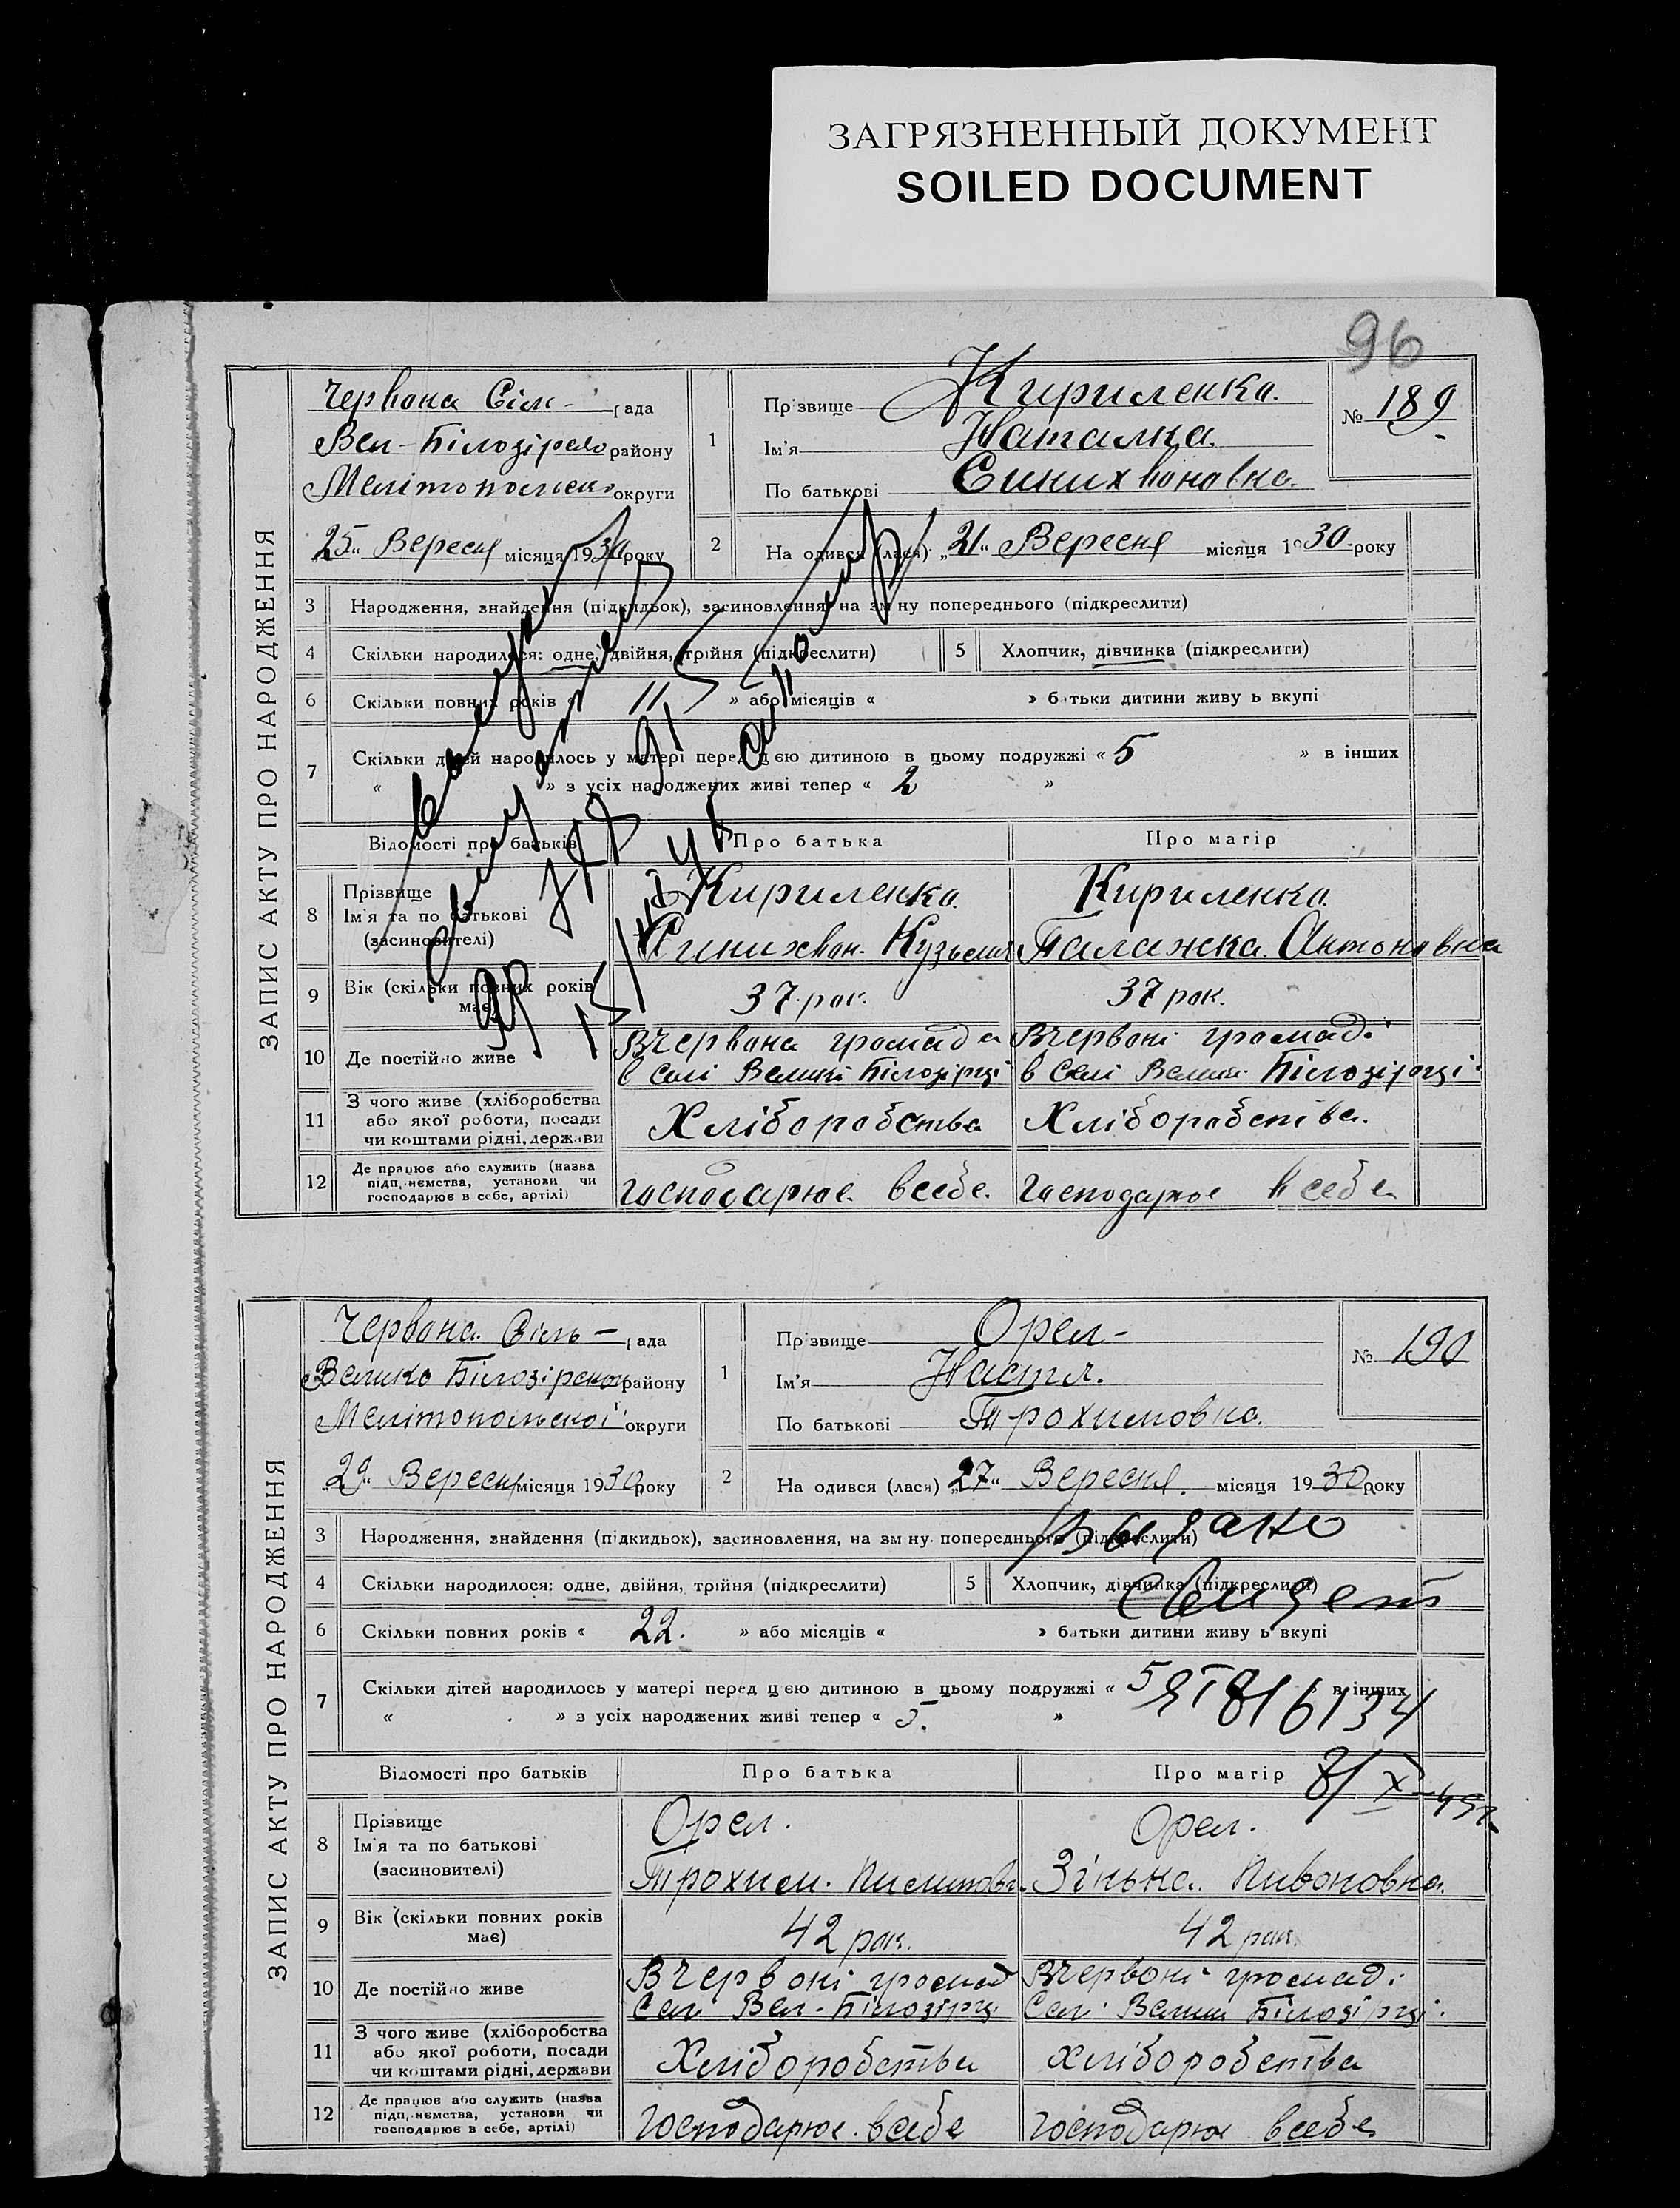 ЗАГРЯЗНЕННЫЙ ДОКУМЕНТ
SOILED DOCUMENT
96
ЗАПИС АКТУ ПРО НАРОДЖЕННЯ
Червона Сіль- рада
Вел-Білозірсько району
Мелітопольсько округи
25 Вересня місяця 1930 року
1
Прізвище Кириленко.
Ім'я Наталка.
По батькові
№ 189
2 На одився (лася) „21“ Вересня місяця 1930 року
3 Народження, знайдення (підкидьок), засиновлення, на зм ну попереднього (підкреслити)
4 Скільки народилося: одне, двійня, трійня (підкреслити)
5 Хлопчик, дівчинка (підкреслити)
6 Скільки повних років « 11 » або місяців « » батьки дитини живу ь вкупі
7 Скільки дітей народилось у матері перед цією дитиною в цьому подружжі « 5 » в інших
« » з усіх народжених живі тепер « 2 »
Відомості про батьків Про батька Про матір
8 Прізвище
Ім'я та по батькові
(засиновителі)
Кириленко. Кириленко.
Палажка Антоновна
9 Вік (скільки повних років має)
37 рок. 37 рок.
10 Де постійно живе
Вчервона громада Вчервоні громаді
в селі Великі Білозірці в селі Велики Білозірці
11 З чого живе (хліборобства
або якої роботи, посади
чи коштами рідні, держави
Хліборобства Хліборобства.
12 Де працює або служить (назва
підприємства, установи чи
господарює в себе, артілі)
господарює всебе. господарює всебе
ЗАПИС АКТУ ПРО НАРОДЖЕННЯ
Червона Сіль- рада
Велико Білозірської району
Мелітопольської округи
29 Вересня місяця 1930 року
1
Прізвище Орел-
Ім'я Настя.
По батькові Трохимовна.
№ 190
2 На одився (лася) „27“ Вересня. місяця 1930 року
3 Народження, знайдення (підкидьок), засиновлення, на зм ну попереднього (підкреслити)
Выдано
4 Скільки народилося: одне, двійня, трійня (підкреслити)
5 Хлопчик, дівчинка (підкреслити)
Свидет
6 Скільки повних років « 22. » або місяців « » батьки дитини живу ь вкупі
7 Скільки дітей народилось у матері перед цією дитиною в цьому подружжі « 5 в інших
« » з усіх народжених живі тепер « 5. »
816134
Відомості про батьків Про батька Про матір
8 Прізвище
Ім'я та по батькові
(засиновителі)
Орел. Орел.
Трохим. Зінька. Пивоновна.
9 Вік (скільки повних років має)
42 рок. 42 рок.
10 Де постійно живе
Вчервоні громад Вчервоні громаді
Селі Вел. Білозірці Селі Велики Білозірці.
11 З чого живе (хліборобства
або якої роботи, посади
чи коштами рідні, держави
Хліборобства хліборобства
12 Де працює або служить (назва
підприємства, установи чи
господарює в себе, артілі)
господарює всебе господарює всебе